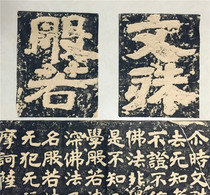 文殊
般若
尒時文
去无知
不證不
佛法
是不知
學般若
深佛法
名般若
无犯无
摩訶薩